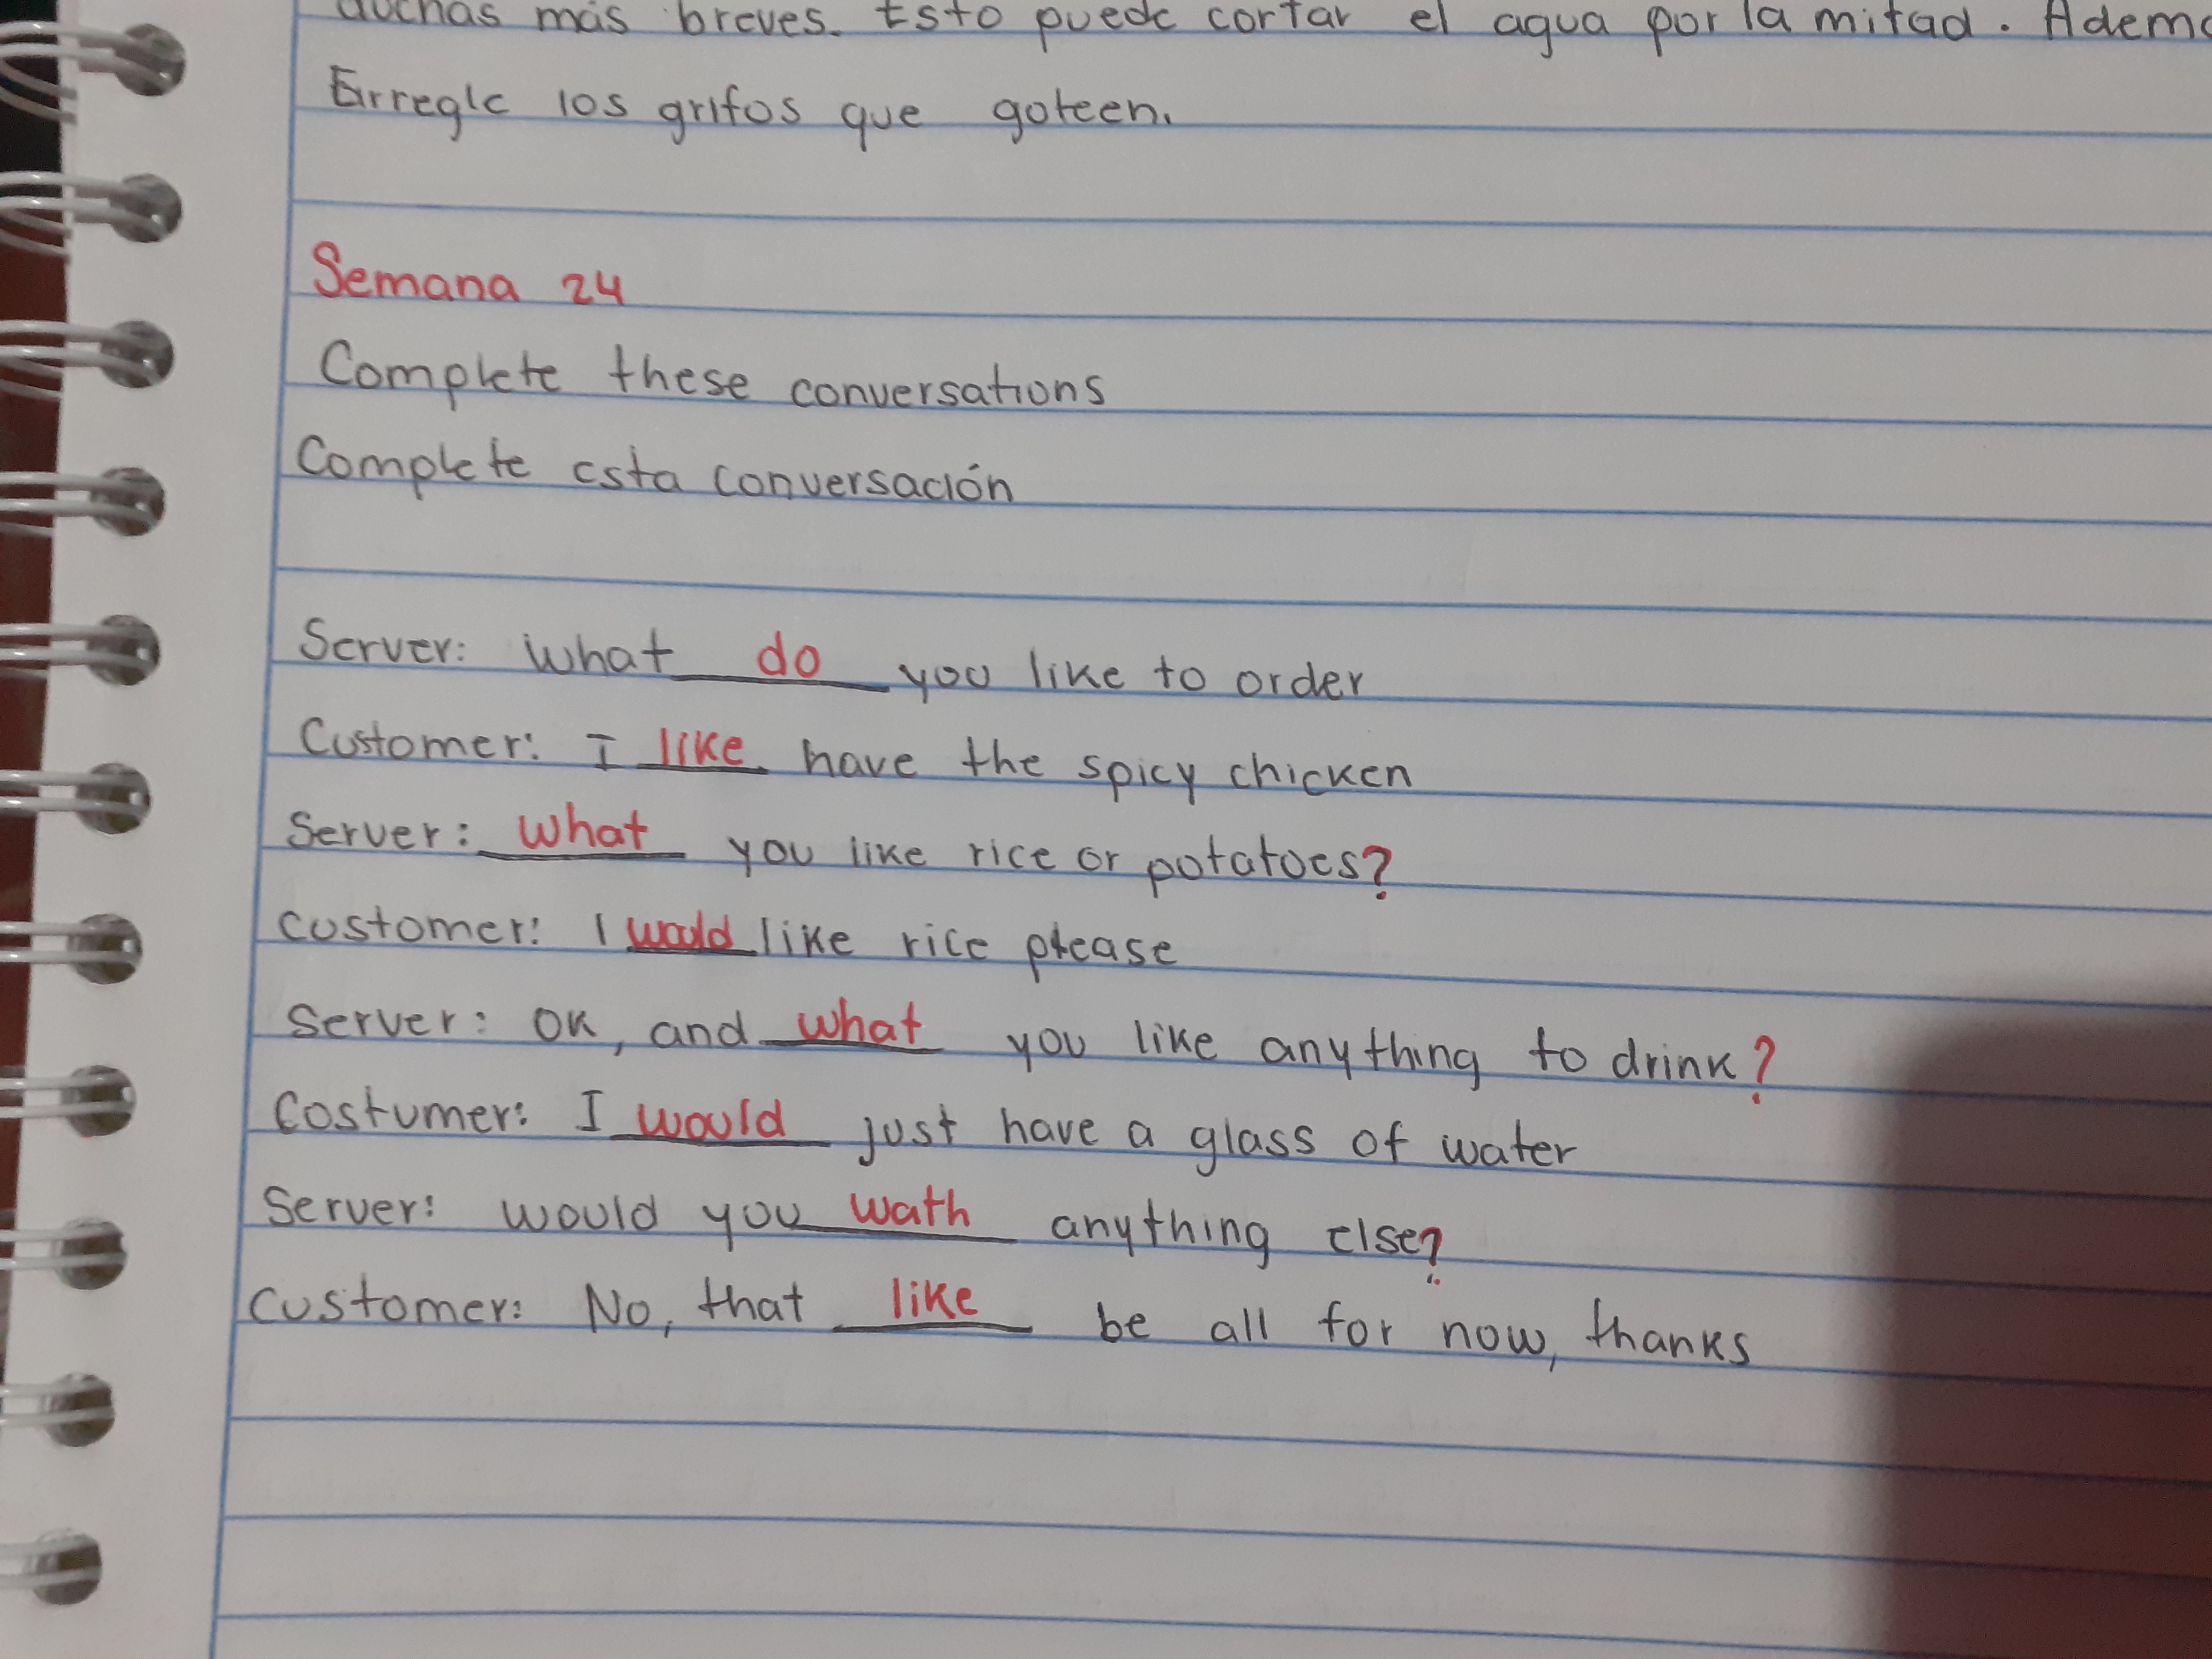 duchas más breves. Esto puede cortar el agua por la mitad. Adem
Erregle los grifos que goteen.
Semana 24
Complete these conversations
Complete esta conversación
Server: What do you like to order
Customer: I like have the spicy chicken
Server: What you like rice or potatoes?
customer: I would like rice please
Server: OK, and what you like anything to drink?
Costumer: I would just have a glass of water
Server: would you wath anything else?
customer: No, that like be all for now, thanks